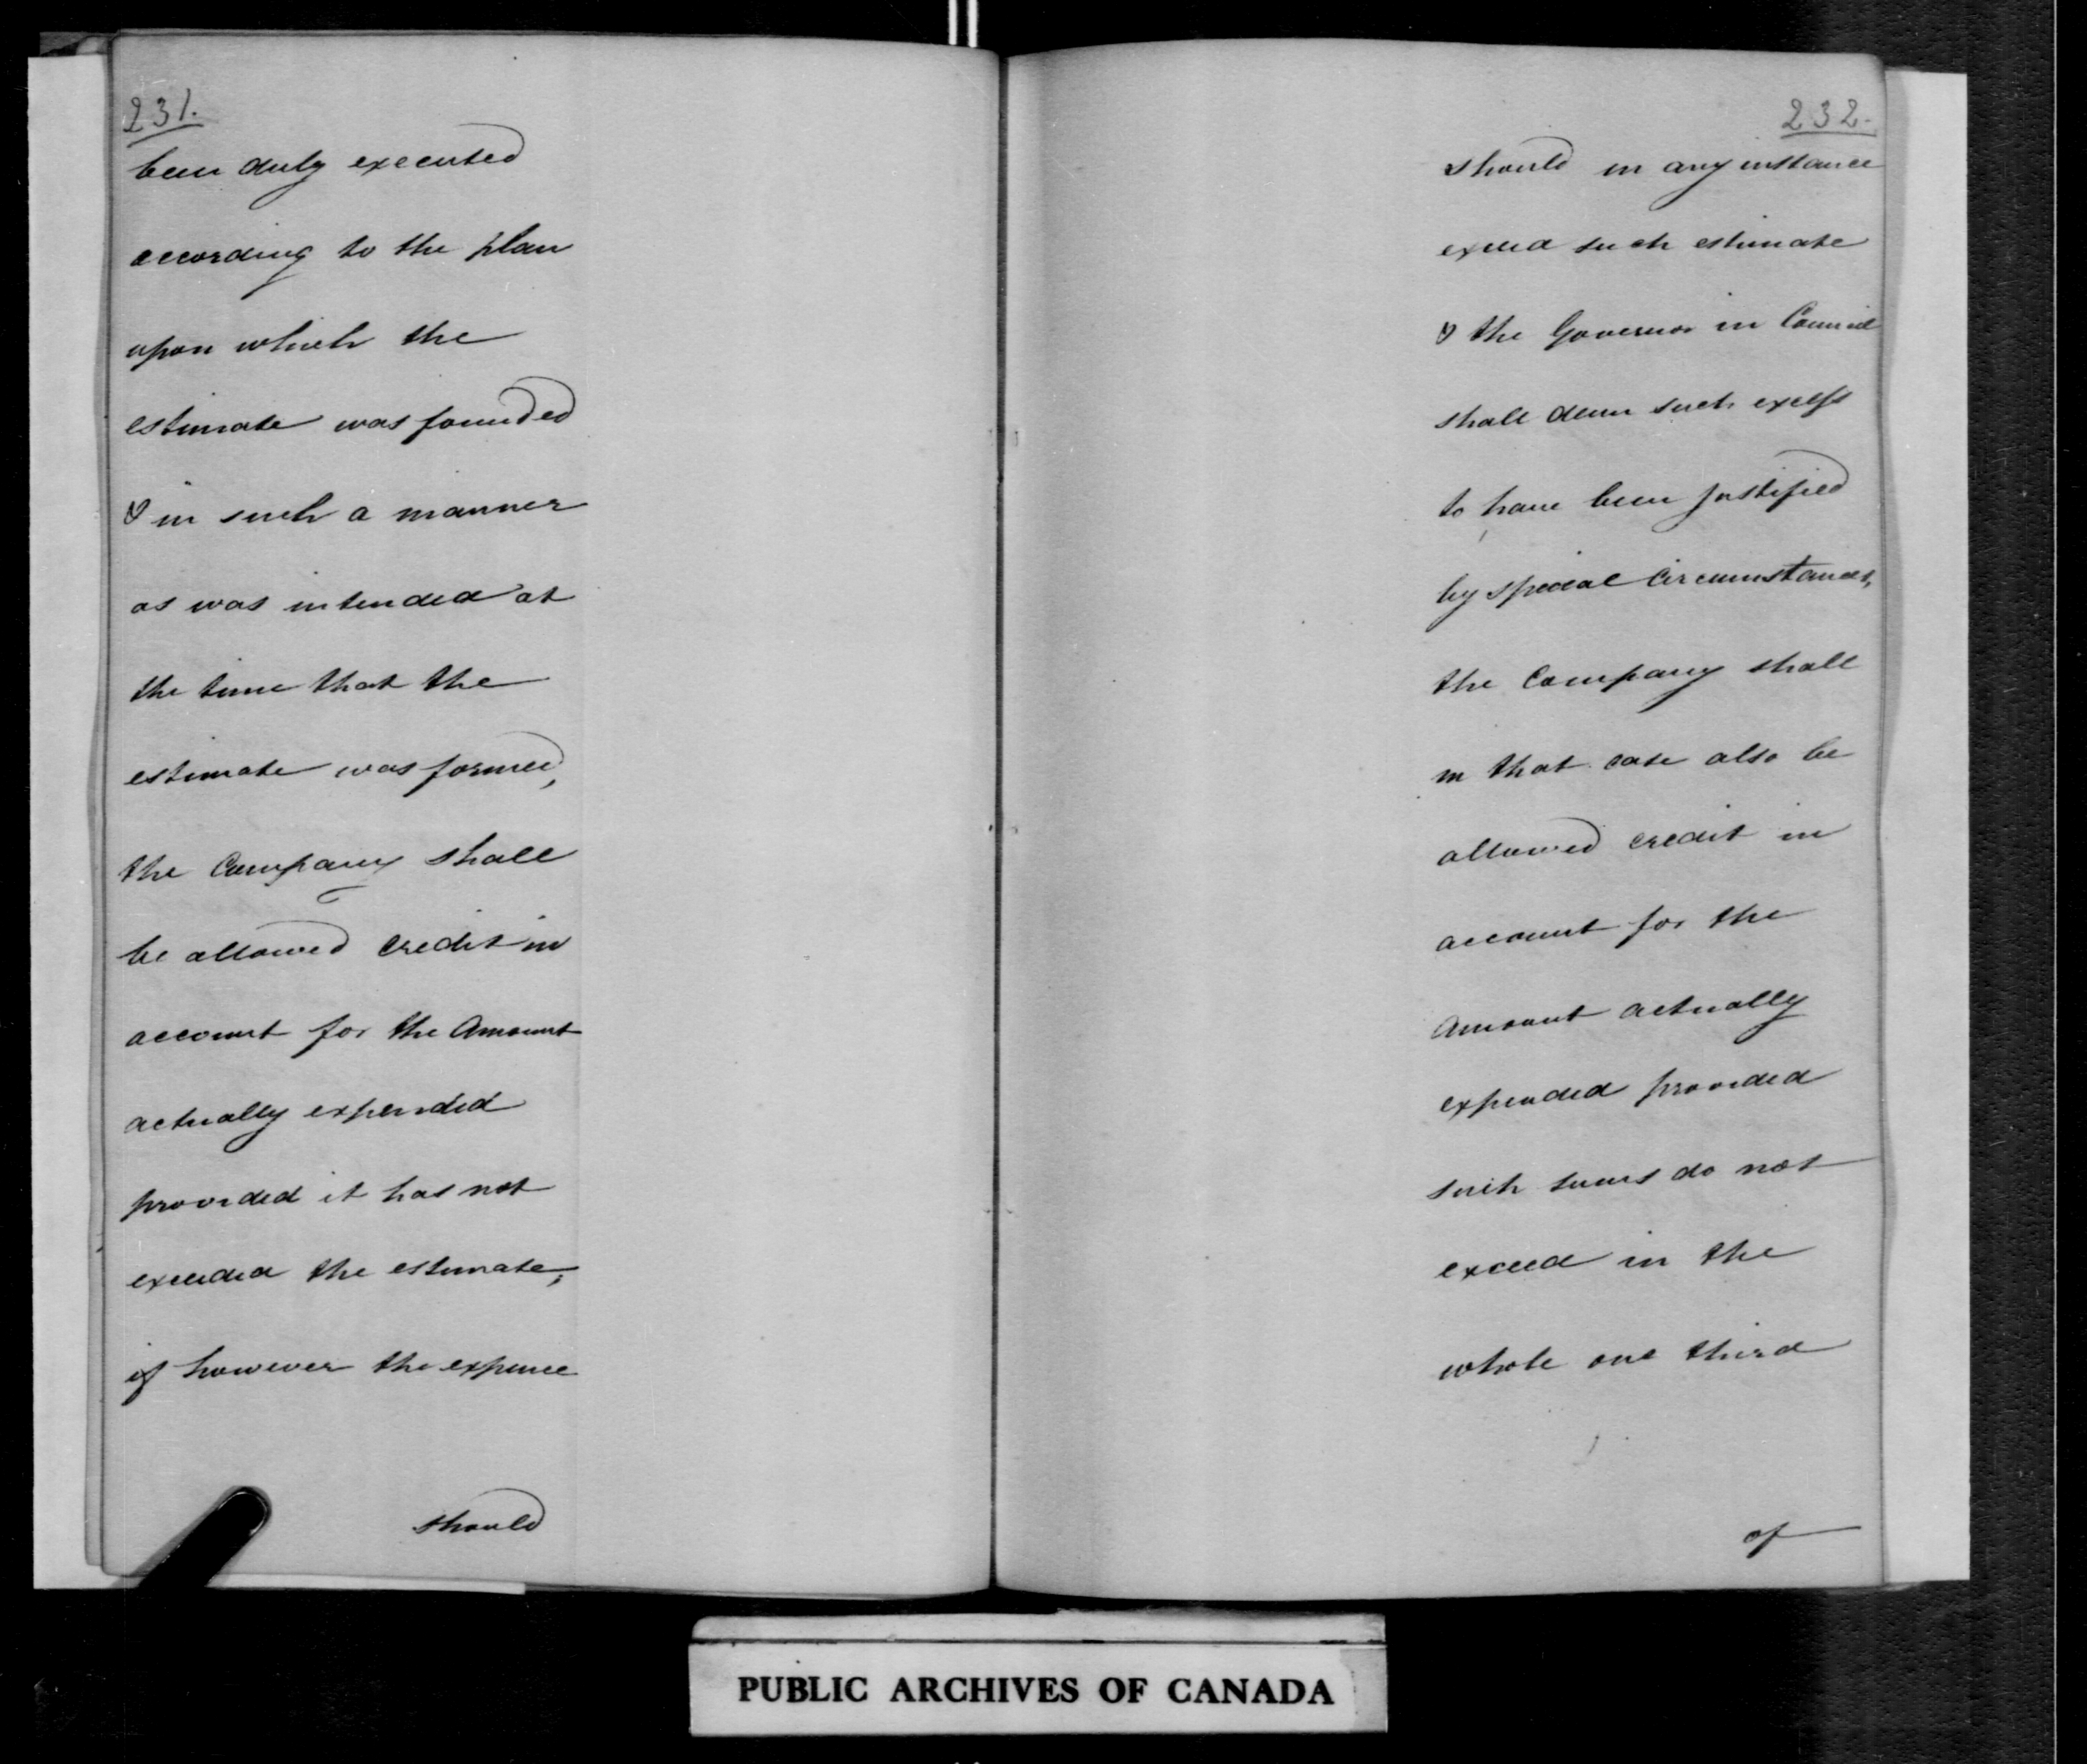 231.
been duly executed
according to the plan
upon which the
estimate was founded
& in such a manner
as was intended at
the time that the
estimate was formed,
the Company shall
be allowed credit in
account for the Amount
actually expended
provided it has not
exceeded the estimate;
if however the expence
should
232.
should in any instance
exceed such estimate
& the Governor in Council
shall deem such excess
to have been justified
by special Circumstances,
the Company shall
in that case also be
allowed credit in
account for the
Amount actually
expended provided
such sums do not
exceed in the
whole one third
of
PUBLIC ARCHIVES OF CANADA